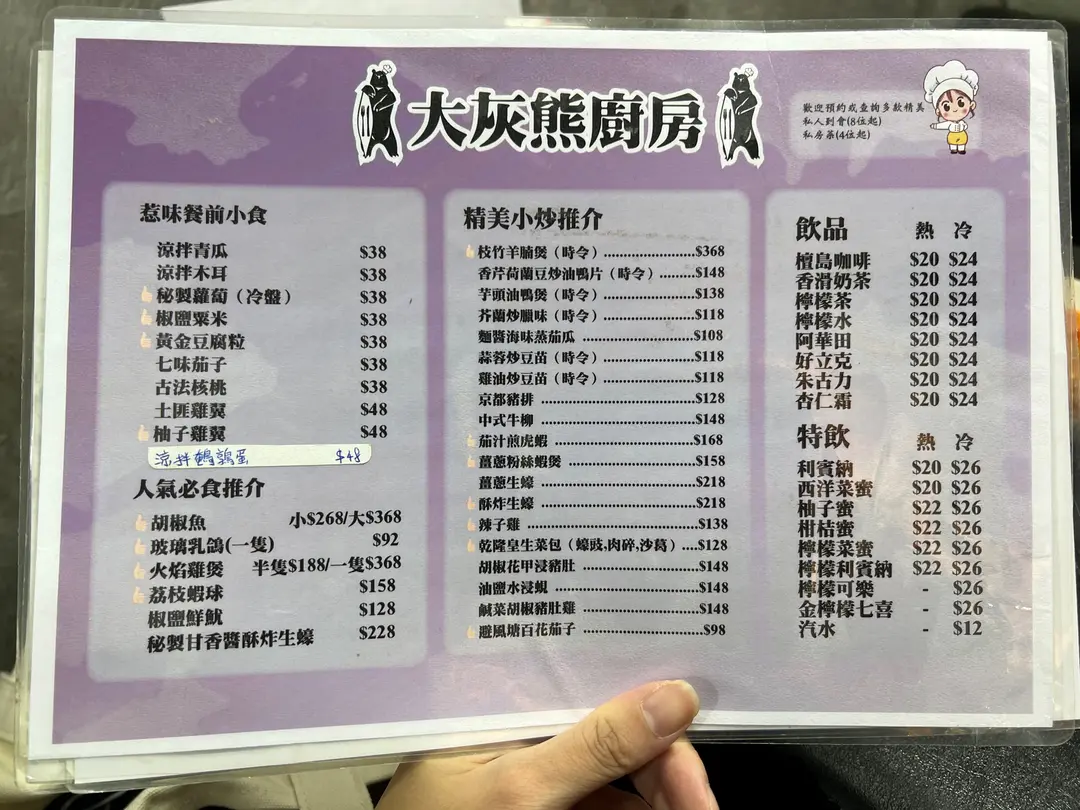 大灰熊廚房
歡迎預約或查詢多款精美
私人到會(8位起)
私房菜(4位起)
惹味餐前小食
涼拌青瓜 $38
涼拌木耳 $38
秘製蘿蔔（冷盤） $38
椒鹽粟米 $38
黃金豆腐粒 $38
七味茄子 $38
古法核桃 $38
土匪雞翼 $48
柚子雞翼 $48
涼拌鵪鶉蛋 $48
人氣必食推介
胡椒魚 小$268/大$368
玻璃乳鴿(一隻) $92
火焰雞煲 半隻$188/一隻$368
荔枝蝦球 $158
椒鹽鮮魷 $128
秘製甘香醬酥炸生蠔 $228
精美小炒推介
枝竹羊腩煲（時令）....................$368
香芹荷蘭豆炒油鴨片（時令）........$148
芋頭油鴨煲（時令）....................$138
芥蘭炒臘味（時令）....................$118
麵醬海味蒸茄瓜 ........................$108
蒜蓉炒豆苗（時令）....................$118
雞油炒豆苗（時令）....................$118
京都豬排 ..................................$128
中式牛柳 ..................................$148
茄汁煎虎蝦 ..............................$168
薑蔥粉絲蝦煲 ...........................$158
薑蔥生蠔 ..................................$218
酥炸生蠔 ..................................$218
辣子雞 .....................................$138
乾隆皇生菜包（蠔豉,肉碎,沙葛）....$128
胡椒花甲浸豬肚 ........................$148
油鹽水浸蜆 ..............................$148
鹹菜胡椒豬肚雞 ........................$148
避風塘百花茄子 ........................$98
飲品 熱 冷
檀島咖啡 $20 $24
香滑奶茶 $20 $24
檸檬茶 $20 $24
檸檬水 $20 $24
阿華田 $20 $24
好立克 $20 $24
朱古力 $20 $24
杏仁霜 $20 $24
特飲 熱 冷
利賓納 $20 $26
西洋菜蜜 $20 $26
柚子蜜 $22 $26
柑桔蜜 $22 $26
檸檬菜蜜 $22 $26
檸檬利賓納 $22 $26
檸檬可樂 - $26
金檸檬七喜 - $26
汽水 - $12